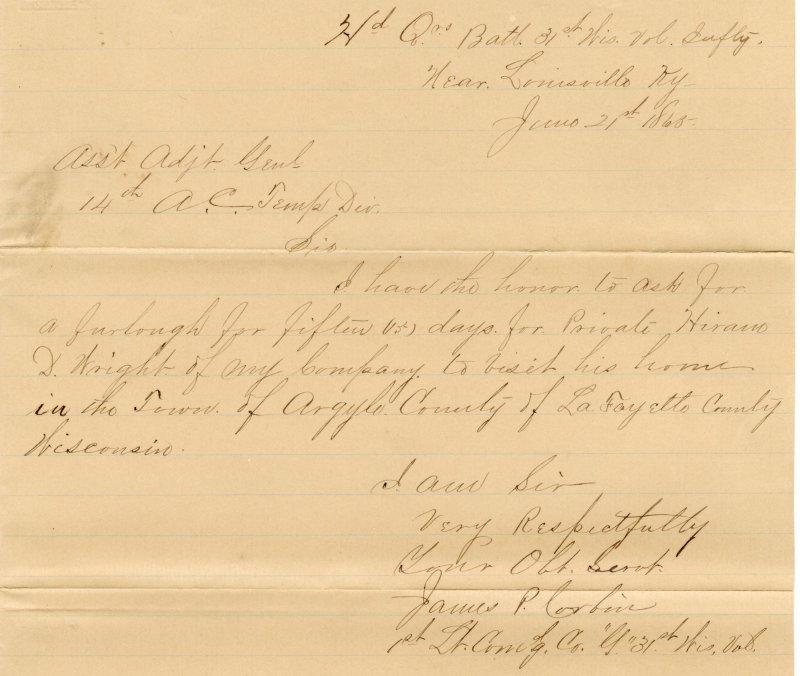 Hd Qrs Batt. 31st Wis. Vol. Infty.
Near. Louisville Ky
June 21st 1865.
Asst Adjt. Genl
14th A.C. Temp Div.
Sir.
I have the honor to ask for
a furlough for fifteen (15) days. for Private Hiram
D. Wright of my Company to visit his home
in the Town. of Argyle County of La Fayette County
Wisconsin.
I am Sir
Very Respectfully
Your Obt. Servt.
James P. Corbin
1st Lt. Comdg. Co. "G" 31st Wis. Vol.